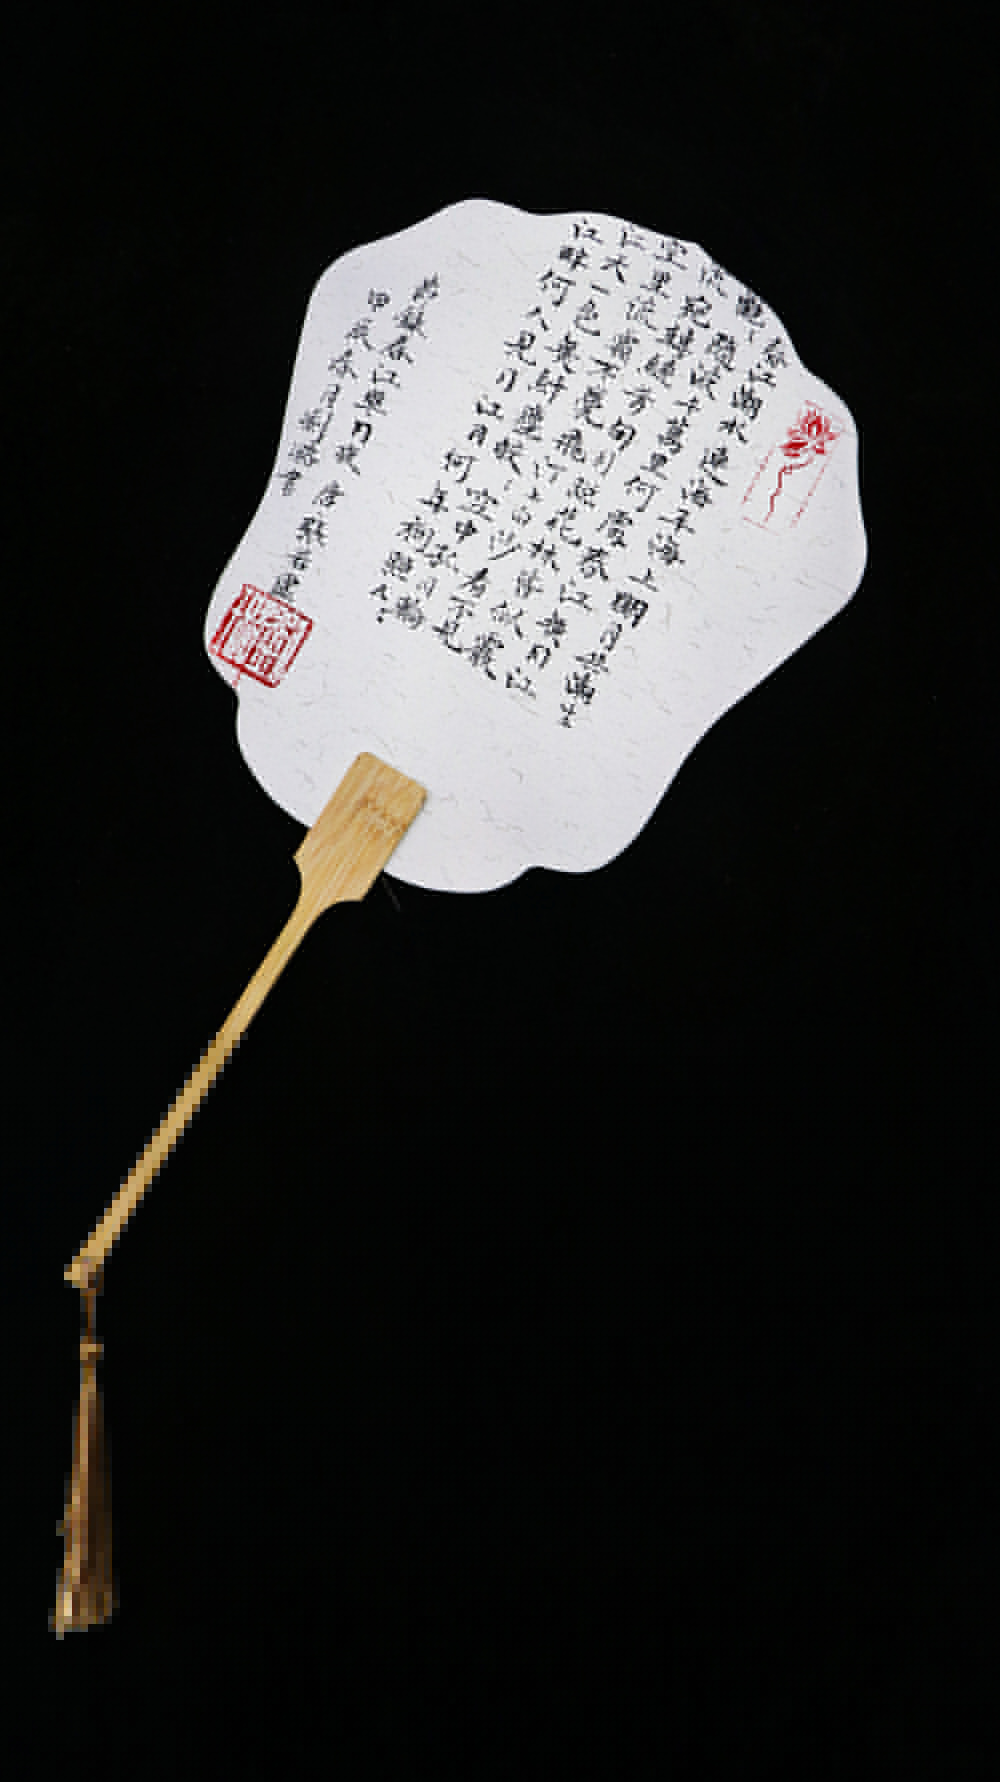 春江潮水連海平海上明月共潮生
灩〻隨波千萬里何處春江無月江
流宛轉繞芳甸月照花林皆似霰
空里流霜不覺飛汀上白沙看不見
江天一色無纖塵皎〻空中孤月輪
江畔何人見月江月何年初照人
錄春江花月夜 唐張若虛
甲辰冬月書